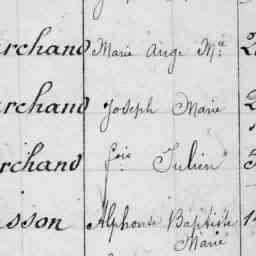 archand Marie Ange Mie
archand Joseph Marie
rchand fois Julien
sson Alphonse Baptiste
Marie